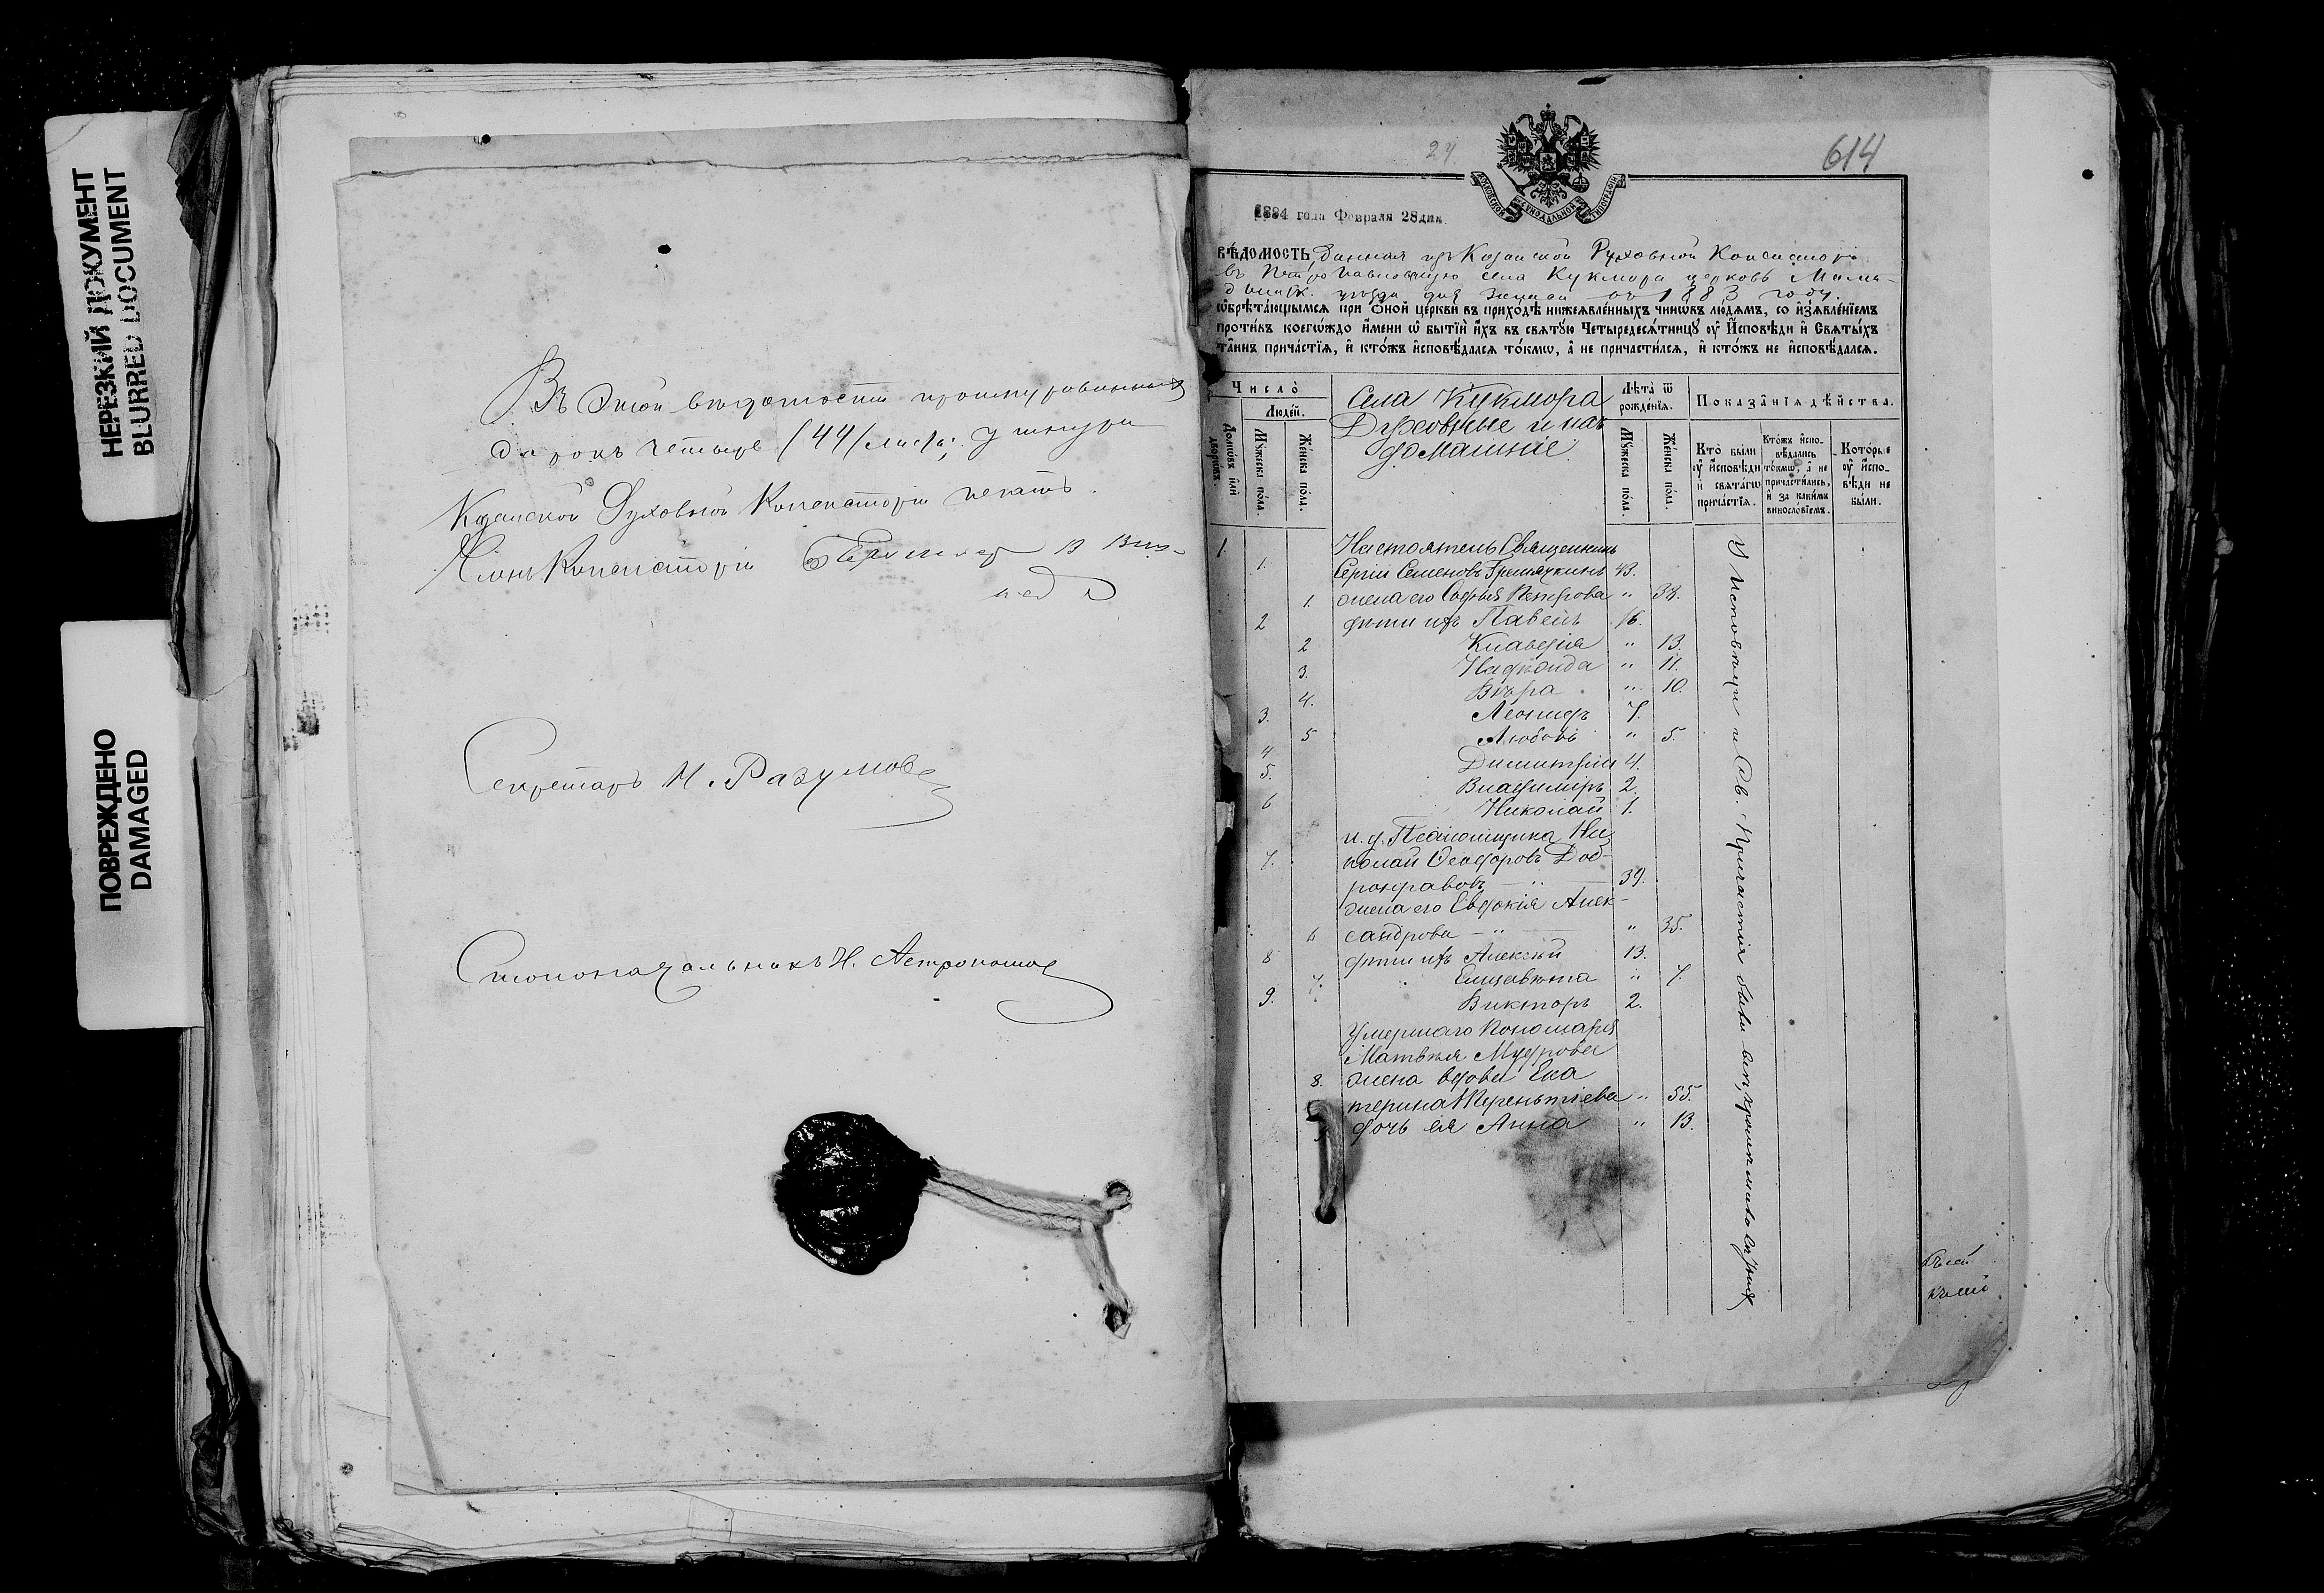 НЕРЕЗКИЙ ДОКУМЕНТ
BLURRED DOCUMENT
ПОВРЕЖДЕНО
DAMAGED
Въ этой вѣдомости прошнурованныхъ
сорокъ четыре (44) листа; у шнура
Казанской Духовной Консисторіи печать.
Членъ Консисторіи
Секретарь Н. Разумовъ
Столоначальникъ Н. Астрономовъ
24
614
1884 года Февраля 28 дня
ВѢДОМОСТЬ, данная изъ Казанской Духовной Консисторіи
въ Петропавловскую села Кукмора церковь Мама-
дышск. уѣзда для записи въ 1883 году.
ѡбрѣта́ющымся при Ѻ҆ной церкви въ приходѣ нижеявле́нныхъ чинѡ́въ лю́дямъ, со и҆з̾явле́нїемъ
противъ коегѡ́ждо и҆мени ѡ҆ бытїи и҆́хъ въ свѧту́ю Четыредесѧ́тницу оу҆ И҆сповѣди и҆ Свѧты́хъ
та̑инъ прича́стїѧ, и҆ кто́жъ и҆сповѣдалсѧ то́кмѡ, а҆ не причасти́лсѧ, и҆ кто́жъ не и҆сповѣ́далсѧ.
Число̀
Люде́й.
Домѡ́въ и҆лѝ дворѡ́въ.
Мꙋ́жеска по́ла.
Же́нска по́ла.
Села Кукмора
Духовные и ихъ
домашніе
Лѣта̀ ѿ рожде́нїѧ.
Мꙋ́жеска по́ла.
Же́нска по́ла.
Показа̑нїѧ дѣ́йства.
Кто̀ бы́ли оу҆ и҆сповѣ́ди и҆ свѧта́гѡ прича́стїѧ.
Кто́жъ и҆спо-вѣ́дались то́кмѡ, а҆ не причасти́лись, и҆ за каки́мъ винослові́емъ.
Кото́рые оу҆ и҆спо-вѣ́ди не бы́ли.
1. Настоятель Священникъ
1. Сергій Семеновъ Гремячкинъ 43.
1. жена его Софья Петрова " 38.
2 дѣти ихъ Павелъ 16.
2 Клавдія " 13.
3. Надежда " 11.
4. Вѣра " 10.
3. Леонидъ 7.
5 Любовь " 5.
4 Димитрій 4.
5. Владиміръ 2.
6 Николай 1.
и. д. Псаломщика Ни-
7. колай Ѳеодоровъ Доб-
ронравовъ — " — 39.
жена его Евдокія Алек-
6 сандрова — " — " 35.
8 дѣти ихъ Алексѣй 13.
7. Елизавета " 7.
9. Викторъ 2.
Умершаго Пономаря
Матвѣя Мудрова
8. жена вдова Ека
терина Терентіева " 55.
дочь ея Анна " 13.
У исповѣди и Св. Причастія были всѣ, кромѣ